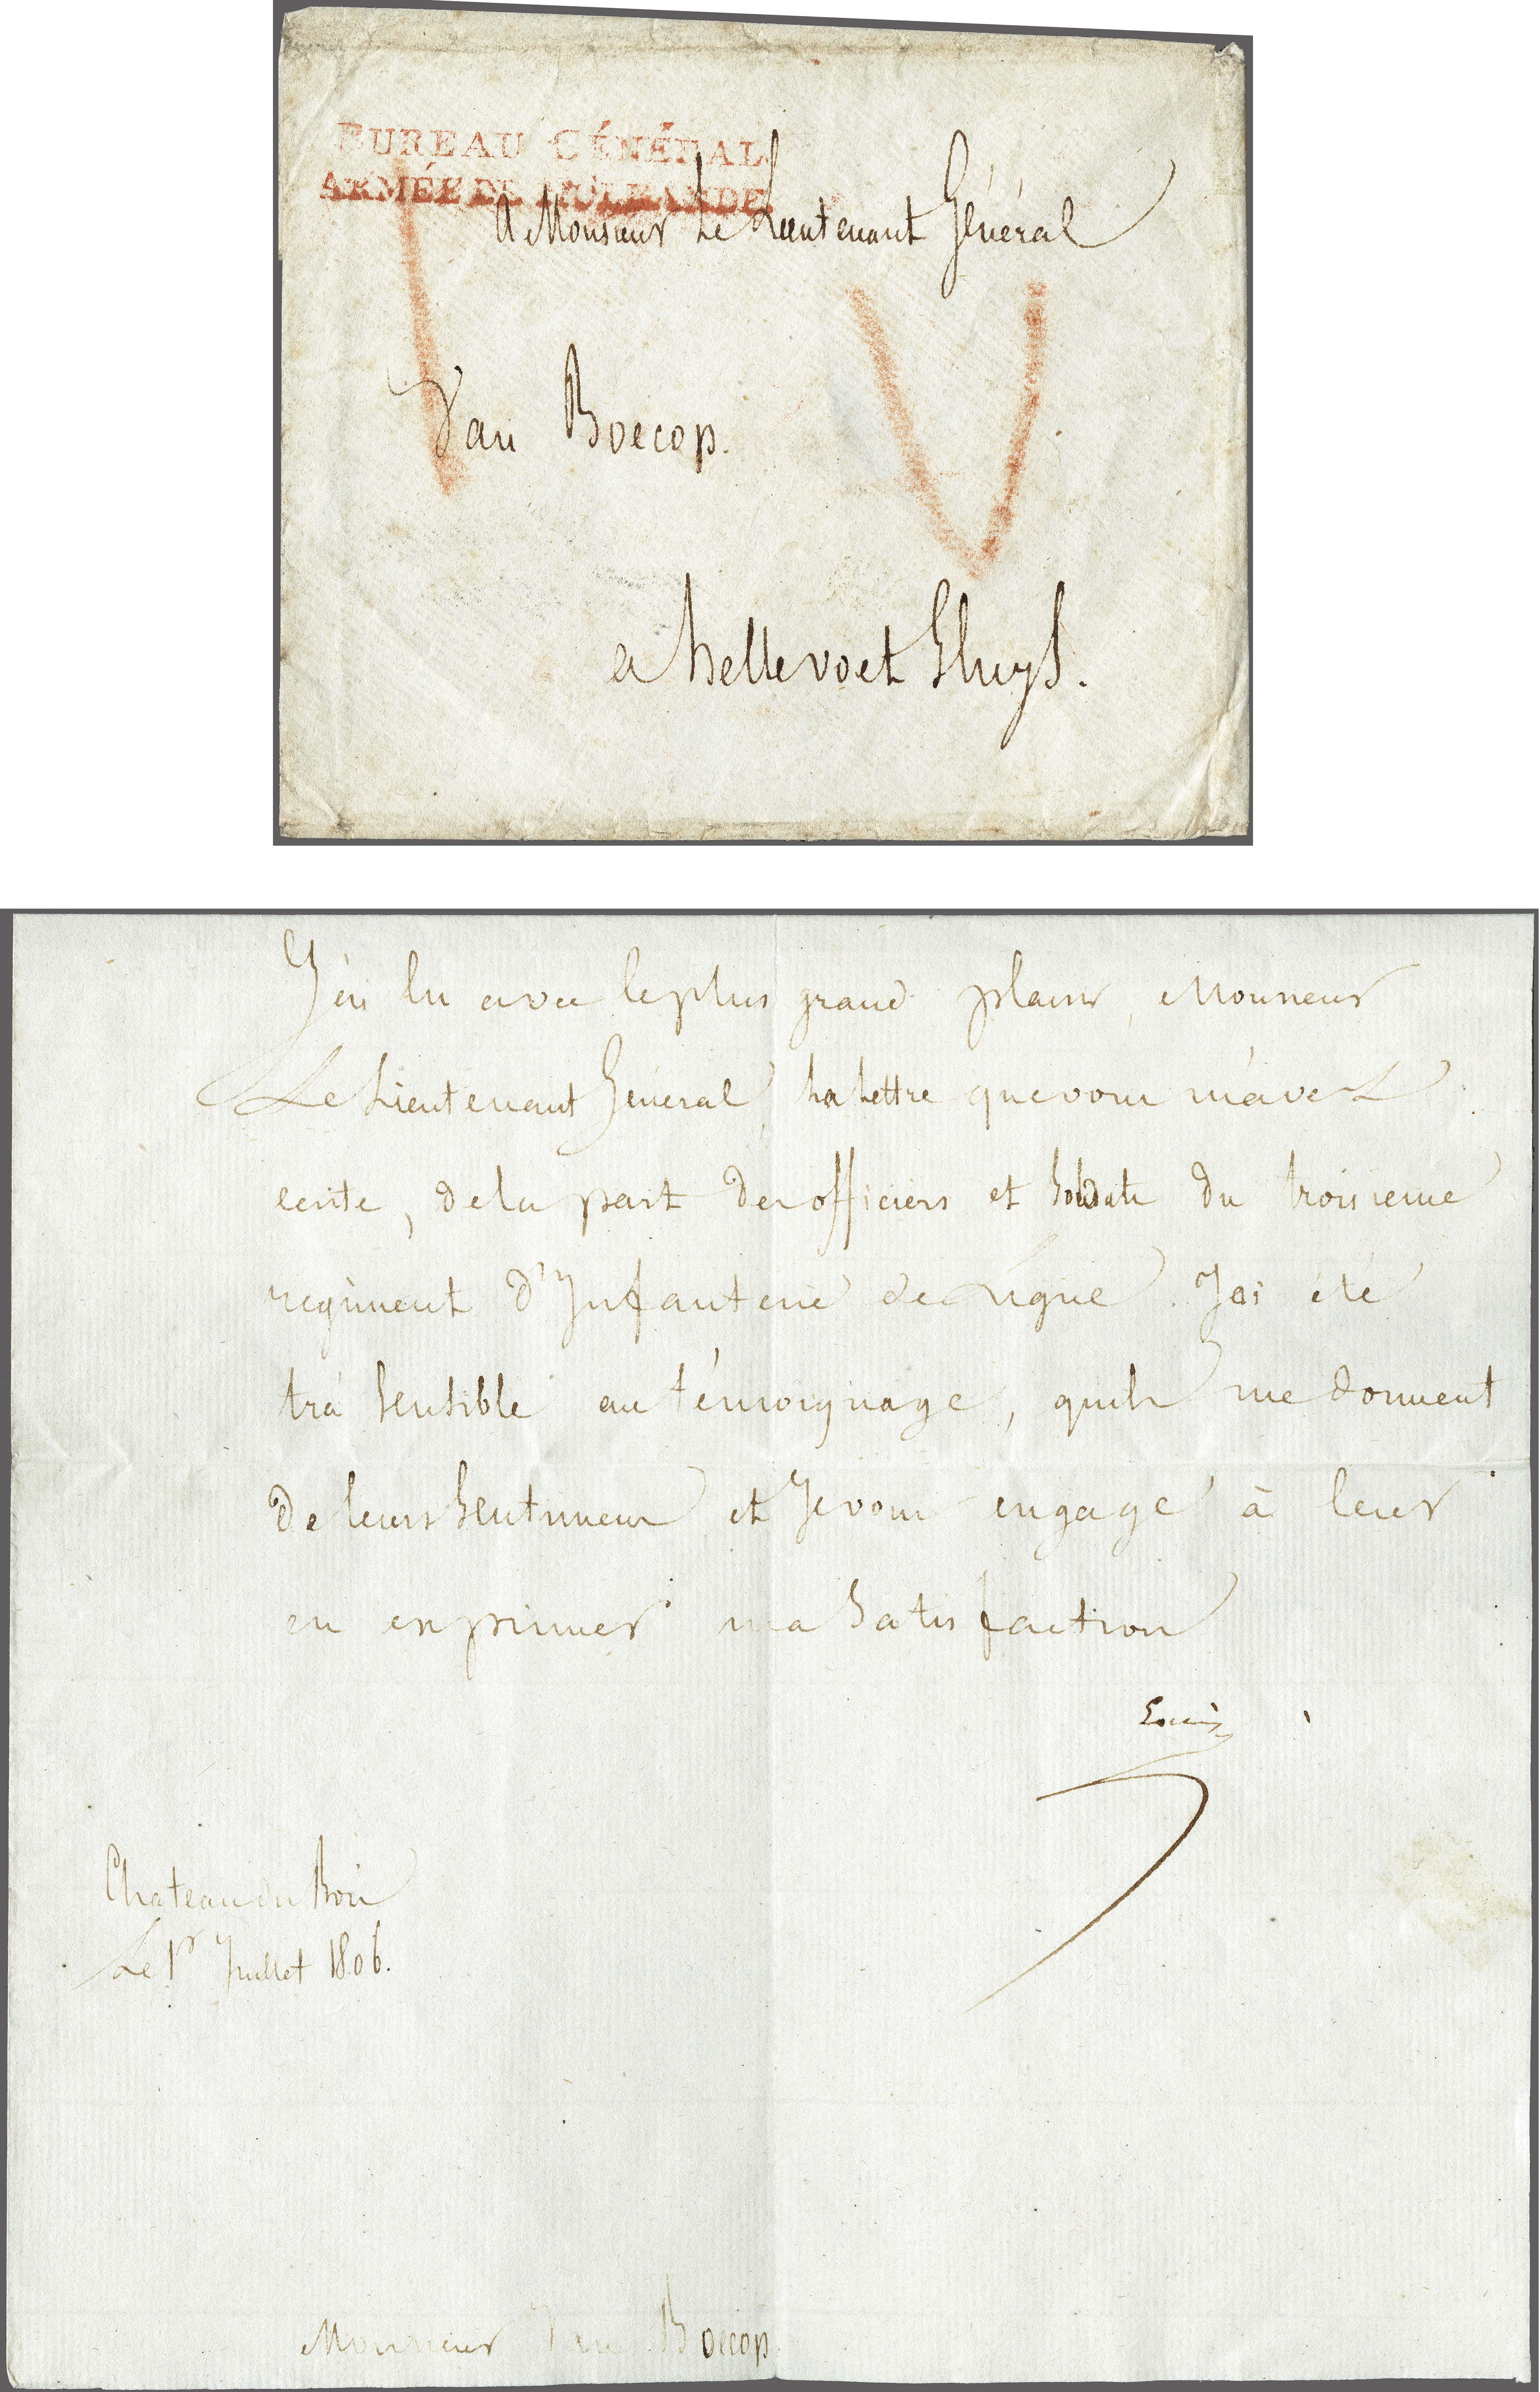 BUREAU GÉNÉRAL
ARMÉE DE HOLLANDE.
A Monsieur Le Lieutenant Général
Van Boecop.
a hellevoet Sluys.
J'ai lu avec le plus grand plaisir, Monsieur
Le Lieutenant Général, La Lettre que vous m'avez
ecrite, de la part des officiers et Soldats du troisieme
regiment d'Infanterie de Ligne. J'ai été
très Sensible au témoignage, qu'ils me donnent
de leurs Sentimens et Je vous engage à leur
en exprimer ma Satisfaction
Louis
Chateau du Bois
Le 1r Juillet 1806.
Monsieur Van Boecop